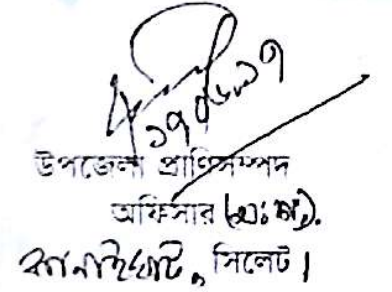 উপজেলা প্রাণিসম্পদ
অফিসার (ভাঃ প্রাঃ).
কানাইঘাট, সিলেট।